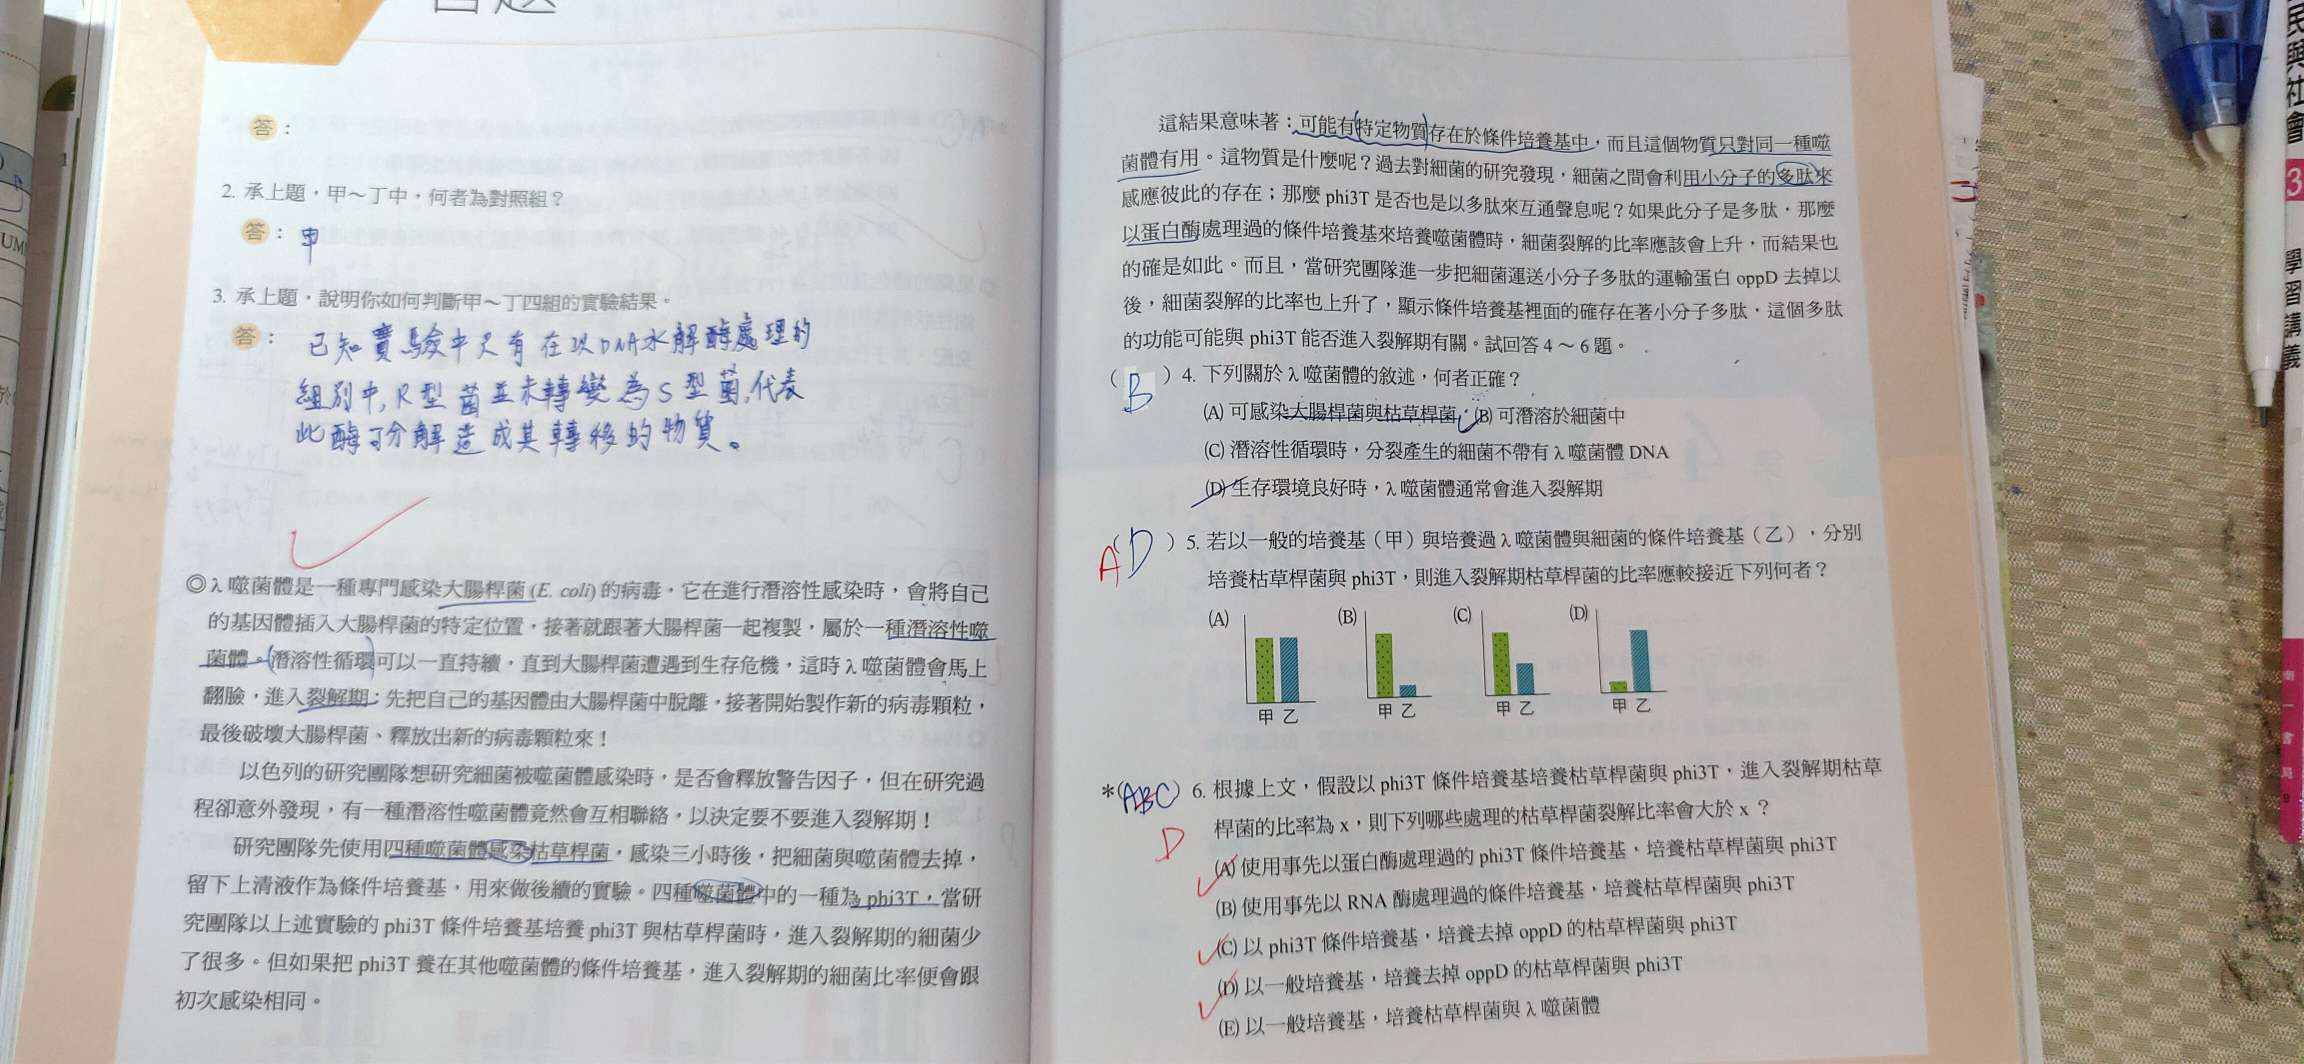 答：
2. 承上題，甲～丁中，何者為對照組？
答： 甲
3. 承上題，說明你如何判斷甲～丁四組的實驗結果。
答： 已知實驗中只有在以DNA水解酶處理的
組別中，R型菌並未轉變為S型菌，代表
此酶可分解造成其轉移的物質。
◎λ噬菌體是一種專門感染大腸桿菌(E. coli)的病毒，它在進行潛溶性感染時，會將自己
的基因體插入大腸桿菌的特定位置，接著就跟著大腸桿菌一起複製，屬於一種潛溶性噬
菌體。潛溶性循環可以一直持續，直到大腸桿菌遭遇到生存危機，這時λ噬菌體會馬上
翻臉，進入裂解期：先把自己的基因體由大腸桿菌中脫離，接著開始製作新的病毒顆粒，
最後破壞大腸桿菌、釋放出新的病毒顆粒來！
以色列的研究團隊想研究細菌被噬菌體感染時，是否會釋放警告因子，但在研究過
程卻意外發現，有一種潛溶性噬菌體竟然會互相聯絡，以決定要不要進入裂解期！
研究團隊先使用四種噬菌體感染枯草桿菌，感染三小時後，把細菌與噬菌體去掉，
留下上清液作為條件培養基，用來做後續的實驗。四種噬菌體中的一種為 phi3T，當研
究團隊以上述實驗的 phi3T 條件培養基培養 phi3T 與枯草桿菌時，進入裂解期的細菌少
了很多。但如果把 phi3T 養在其他噬菌體的條件培養基，進入裂解期的細菌比率便會跟
初次感染相同。
這結果意味著：可能有特定物質存在於條件培養基中，而且這個物質只對同一種噬
菌體有用。這物質是什麼呢？過去對細菌的研究發現，細菌之間會利用小分子的多肽來
感應彼此的存在；那麼 phi3T 是否也是以多肽來互通聲息呢？如果此分子是多肽，那麼
以蛋白酶處理過的條件培養基來培養噬菌體時，細菌裂解的比率應該會上升，而結果也
的確是如此。而且，當研究團隊進一步把細菌運送小分子多肽的運輸蛋白 oppD 去掉以
後，細菌裂解的比率也上升了，顯示條件培養基裡面的確存在著小分子多肽，這個多肽
的功能可能與 phi3T 能否進入裂解期有關。試回答 4～6 題。
（ B ）4. 下列關於λ噬菌體的敘述，何者正確？
(A) 可感染大腸桿菌與枯草桿菌 (B) 可潛溶於細菌中
(C) 潛溶性循環時，分裂產生的細菌不帶有λ噬菌體 DNA
(D) 生存環境良好時，λ噬菌體通常會進入裂解期
A（ D ）5. 若以一般的培養基（甲）與培養過λ噬菌體與細菌的條件培養基（乙），分別
培養枯草桿菌與 phi3T，則進入裂解期枯草桿菌的比率應較接近下列何者？
(A) (B) (C) (D)
甲 乙 甲 乙 甲 乙 甲 乙
*（ABC）6. 根據上文，假設以 phi3T 條件培養基培養枯草桿菌與 phi3T，進入裂解期枯草
D 桿菌的比率為 x，則下列哪些處理的枯草桿菌裂解比率會大於 x ？
(A) 使用事先以蛋白酶處理過的 phi3T 條件培養基，培養枯草桿菌與 phi3T
(B) 使用事先以 RNA 酶處理過的條件培養基，培養枯草桿菌與 phi3T
(C) 以 phi3T 條件培養基，培養去掉 oppD 的枯草桿菌與 phi3T
(D) 以一般培養基，培養去掉 oppD 的枯草桿菌與 phi3T
(E) 以一般培養基，培養枯草桿菌與λ噬菌體
民與社會
3
學習講義
南一書局